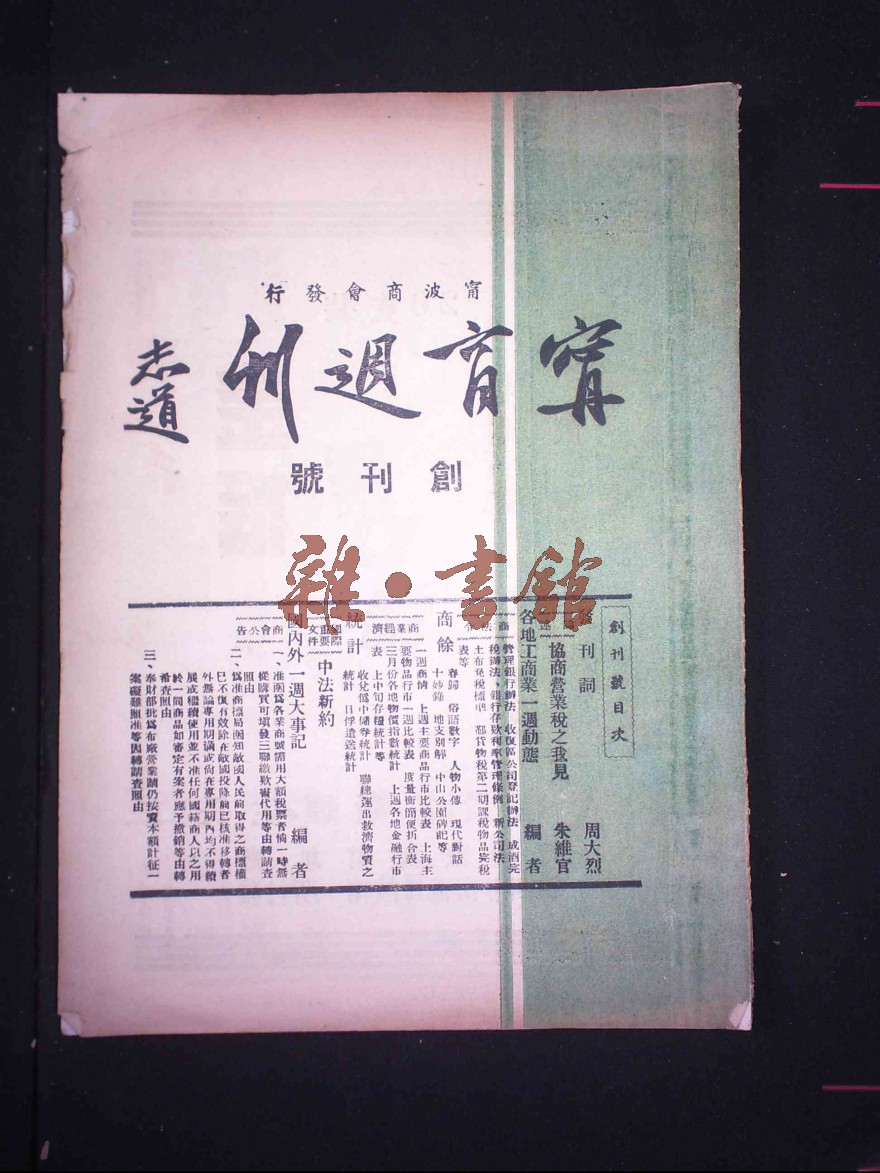 甯波商會發行
甯育週刊
志道
創刊號
雜·書館
創刊號目次
刊詞 周大烈
協商營業稅之我見 朱維官
各地工商業一週動態 編者
管理銀行辦法 收復區公司登記辦法 成酒完
稅辦法、銀行存欵利率管理條例 新公司法
土布免稅標準 鄞貨物稅第二期課稅物品完稅
表等
商餘
春歸 俗語數字 人物小傳 現代對話
十妙錄 地支別解 中山公園碑記等
商業經濟
一週商情 上週主要商品行市比較表 上海主
要物品行市一週比較表 度量衡簡便折合表
三月份各地物價指數統計 上週各地金融行市
表 上中旬存糧統計等
統計
收兌僞中儲券統計 聯總運出救濟物資之
統計 日俘遣送統計
國際重要文件
中法新約
國內外一週大事記 編者
商會公告
一、准函爲各業商號需用大額稅票者倘一時無
從購買可塡發三聯繳欵書代用等由轉請查
照由
二、爲准商標局函知敵國人民前取得之商標權
已不復有效除在敵國投降前已核准移轉者
外無論專用期滿或尙在專用期內均不得續
展或繼續使用並不准任何國籍商人以之用
於一同商品如審定有案者應予撤銷等由轉
希查照由
三、奉財部批爲布廠營業請仍按資本額計征一
案礙難照准等因轉請查照由